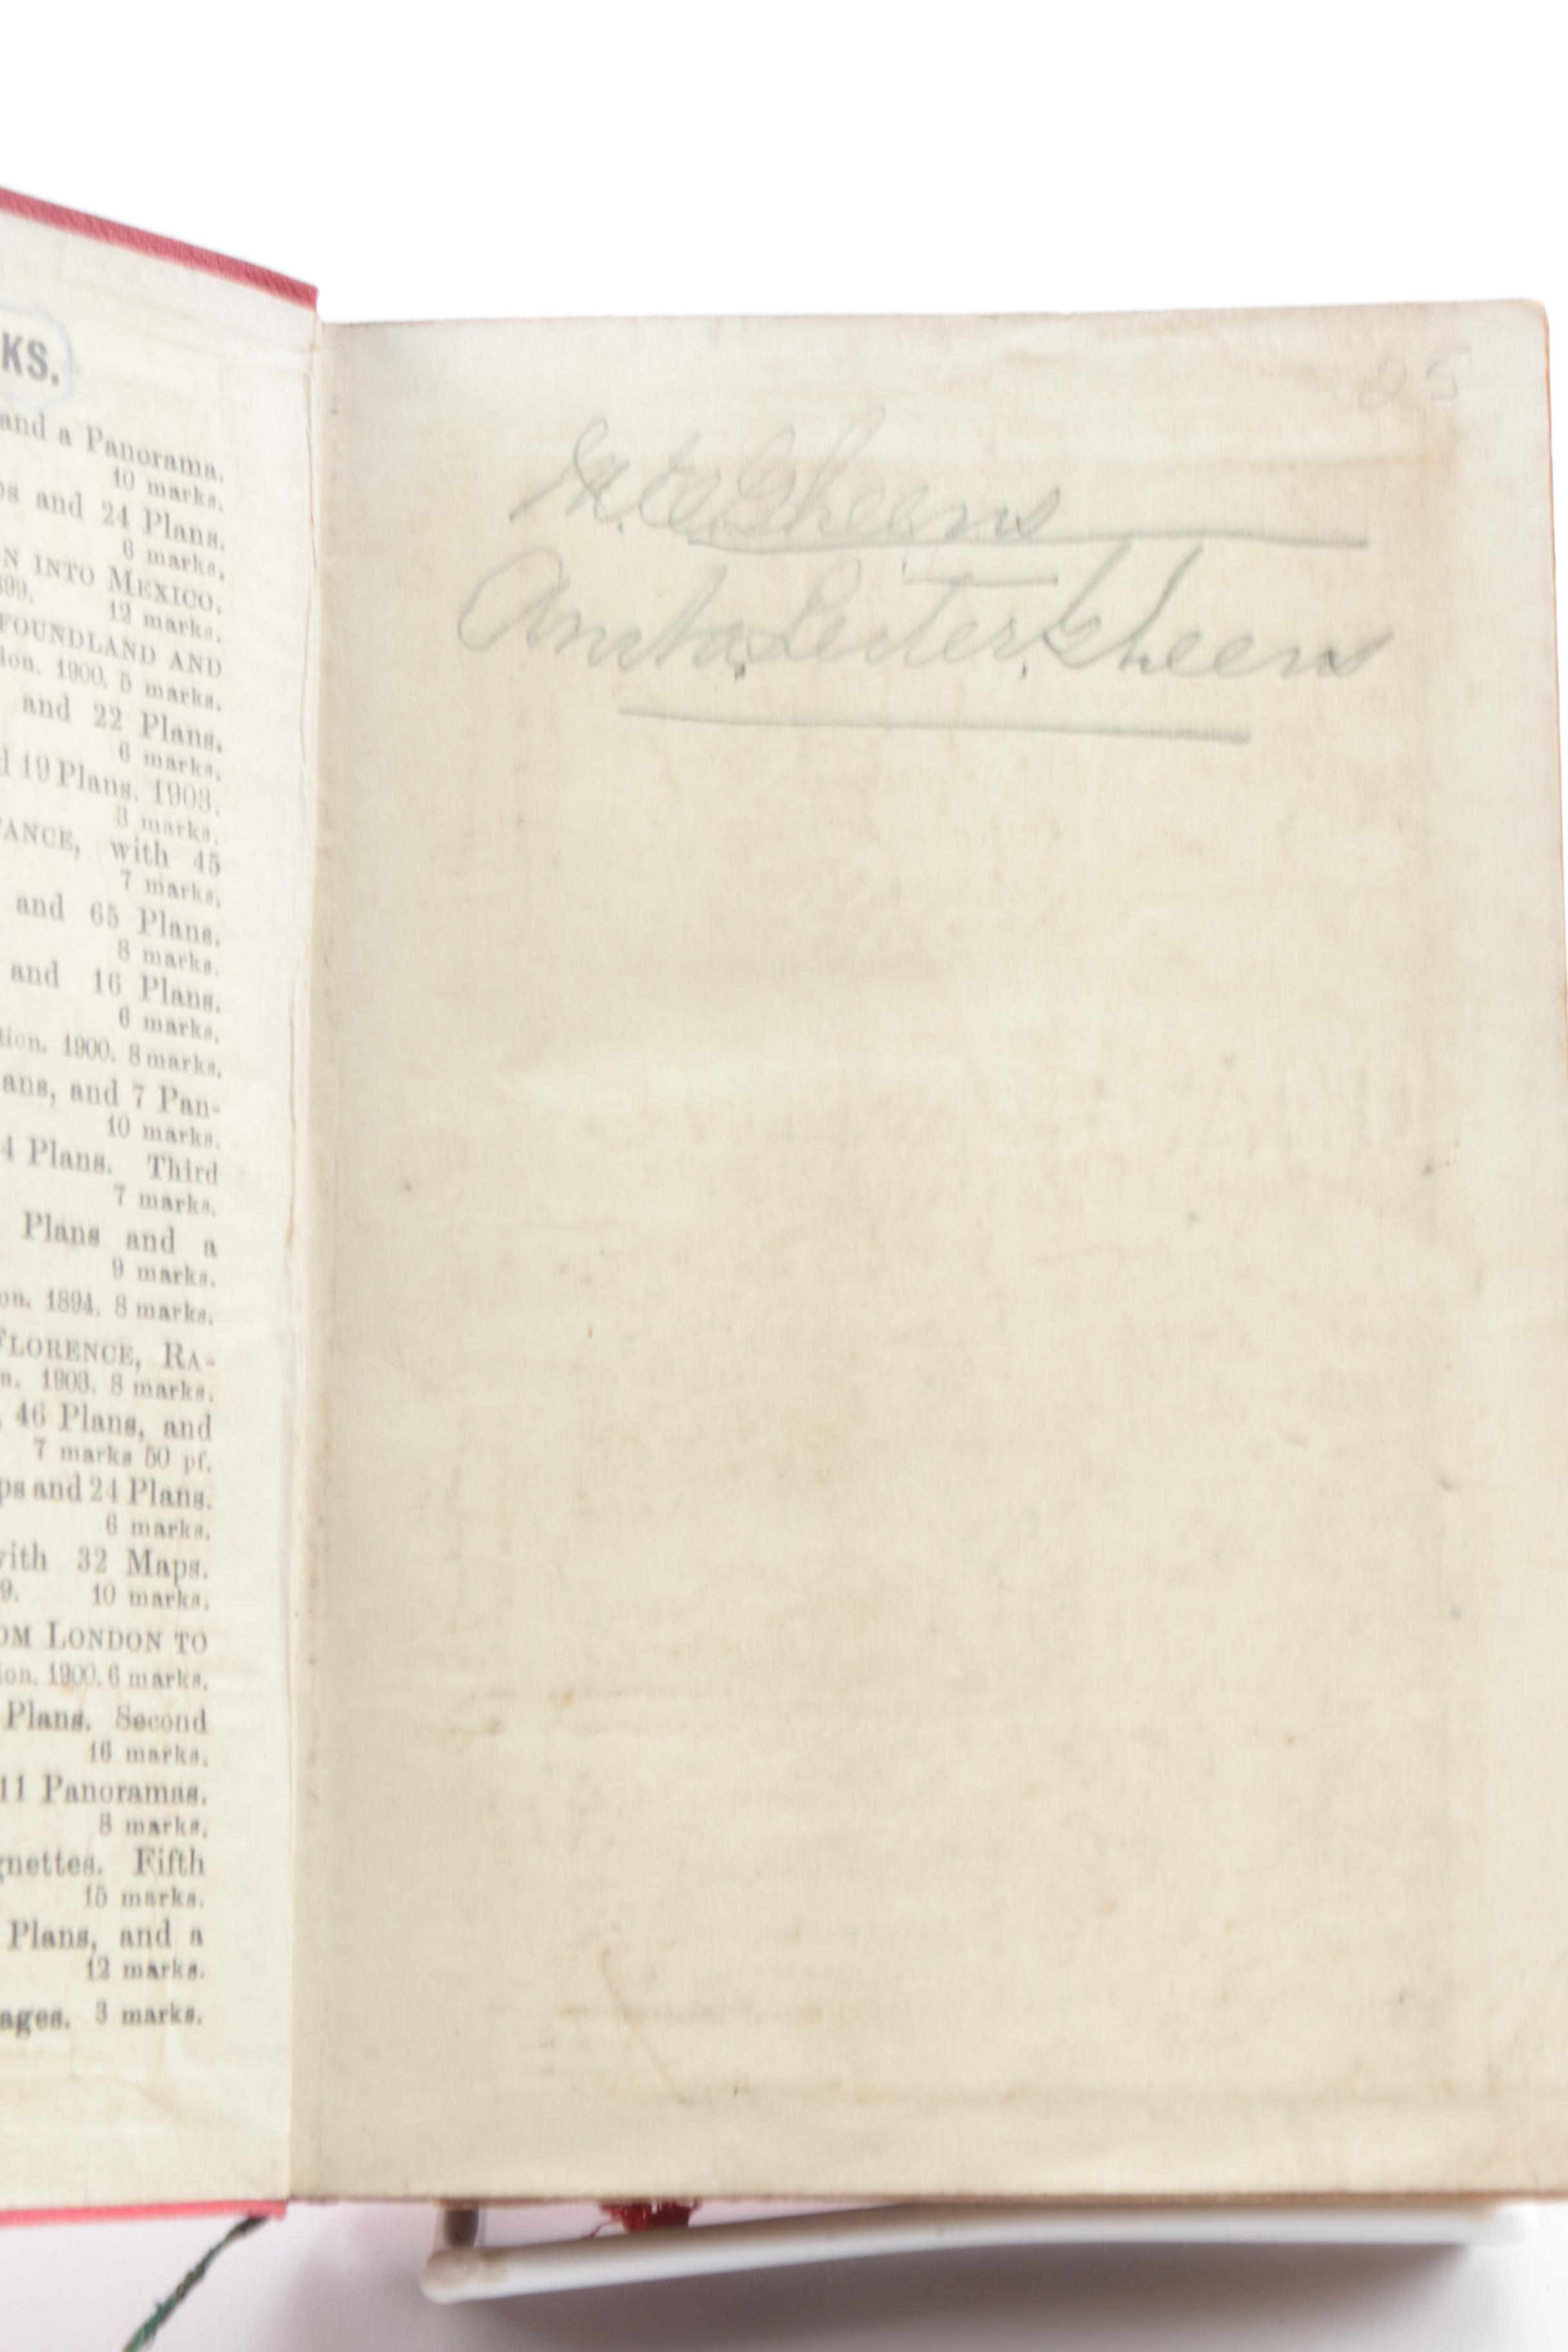 KS.
and a Panorama.
10 marks.
ps and 24 Plans.
6 marks.
N INTO MEXICO.
899. 12 marks.
FOUNDLAND AND
ion. 1900. 5 marks.
and 22 Plans.
6 marks.
d 19 Plans. 1903.
3 marks.
TANCE, with 45
7 marks.
and 65 Plans.
8 marks.
and 16 Plans.
6 marks.
tion. 1900. 8 marks.
ans, and 7 Pan-
10 marks.
4 Plans. Third
7 marks.
Plans and a
9 marks.
on. 1894. 8 marks.
FLORENCE, RA-
n. 1903. 8 marks.
, 46 Plans, and
7 marks 50 pf.
ps and 24 Plans.
6 marks.
with 32 Maps.
9. 10 marks.
OM LONDON TO
ion. 1900. 6 marks.
Plans. Second
16 marks.
11 Panoramas.
8 marks.
gnettes. Fifth
15 marks.
Plans, and a
12 marks.
ages. 3 marks.
25
Gheens
Anita Leiter Gheens